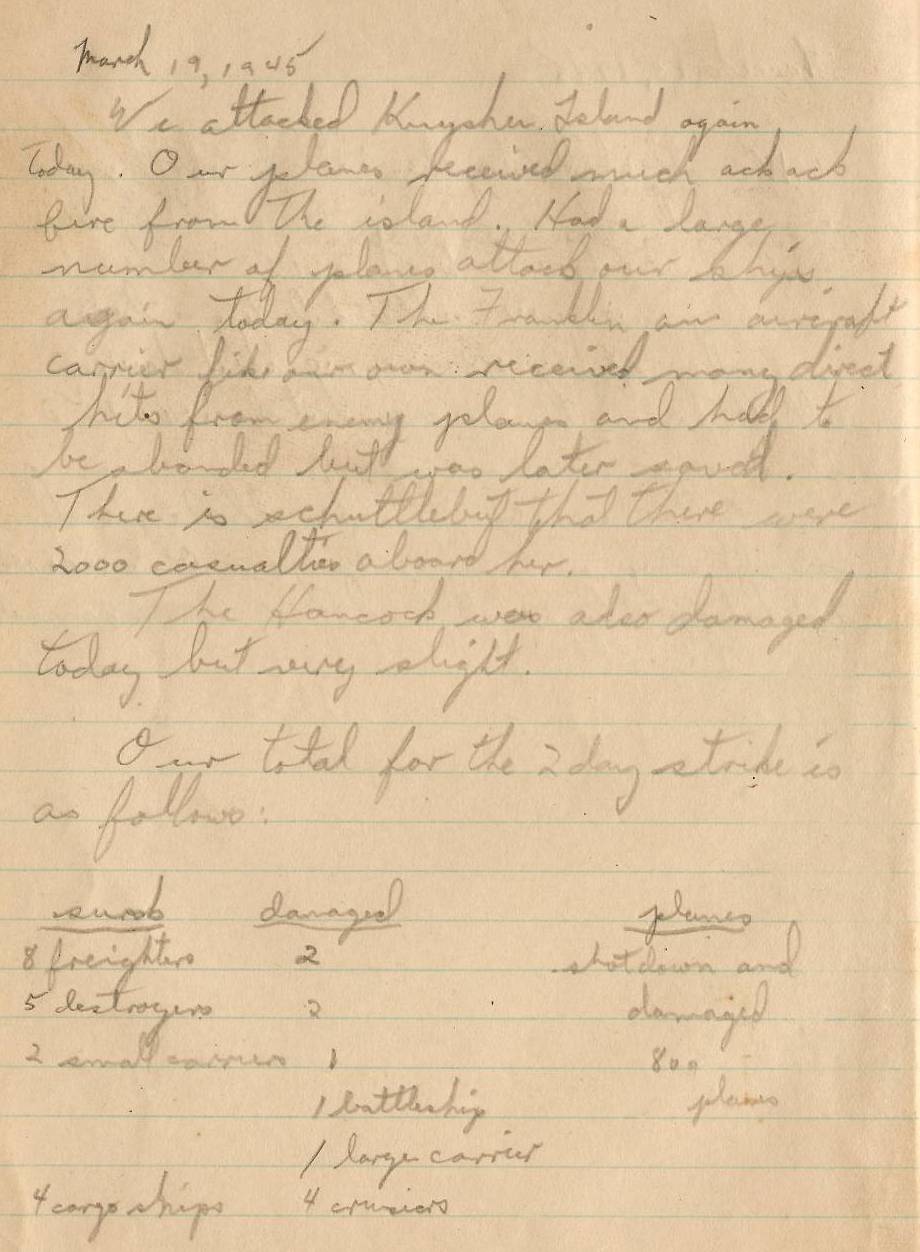 March 19, 1945
We attacked Kuysher Island again
Today. Our planes received much ack ack
fire from The island. Had a large
number of planes attack our ships
again today. The Franklin an aircraft
carrier like our own received many direct
hits from enemy planes and had to
be abonded but was later saved.
There is schuttlebut that there were
2000 casualties aboard her.
The Hancock was also damaged
today but very slight.
Our total for the 2 day strike is
as follows:
sunk damaged planes
8 freighters 2 shotdown and
5 destroyers 2 damaged
2 small carriers 1 800
1 battleship planes
1 large carrier
4 cargo ships 4 crusiers